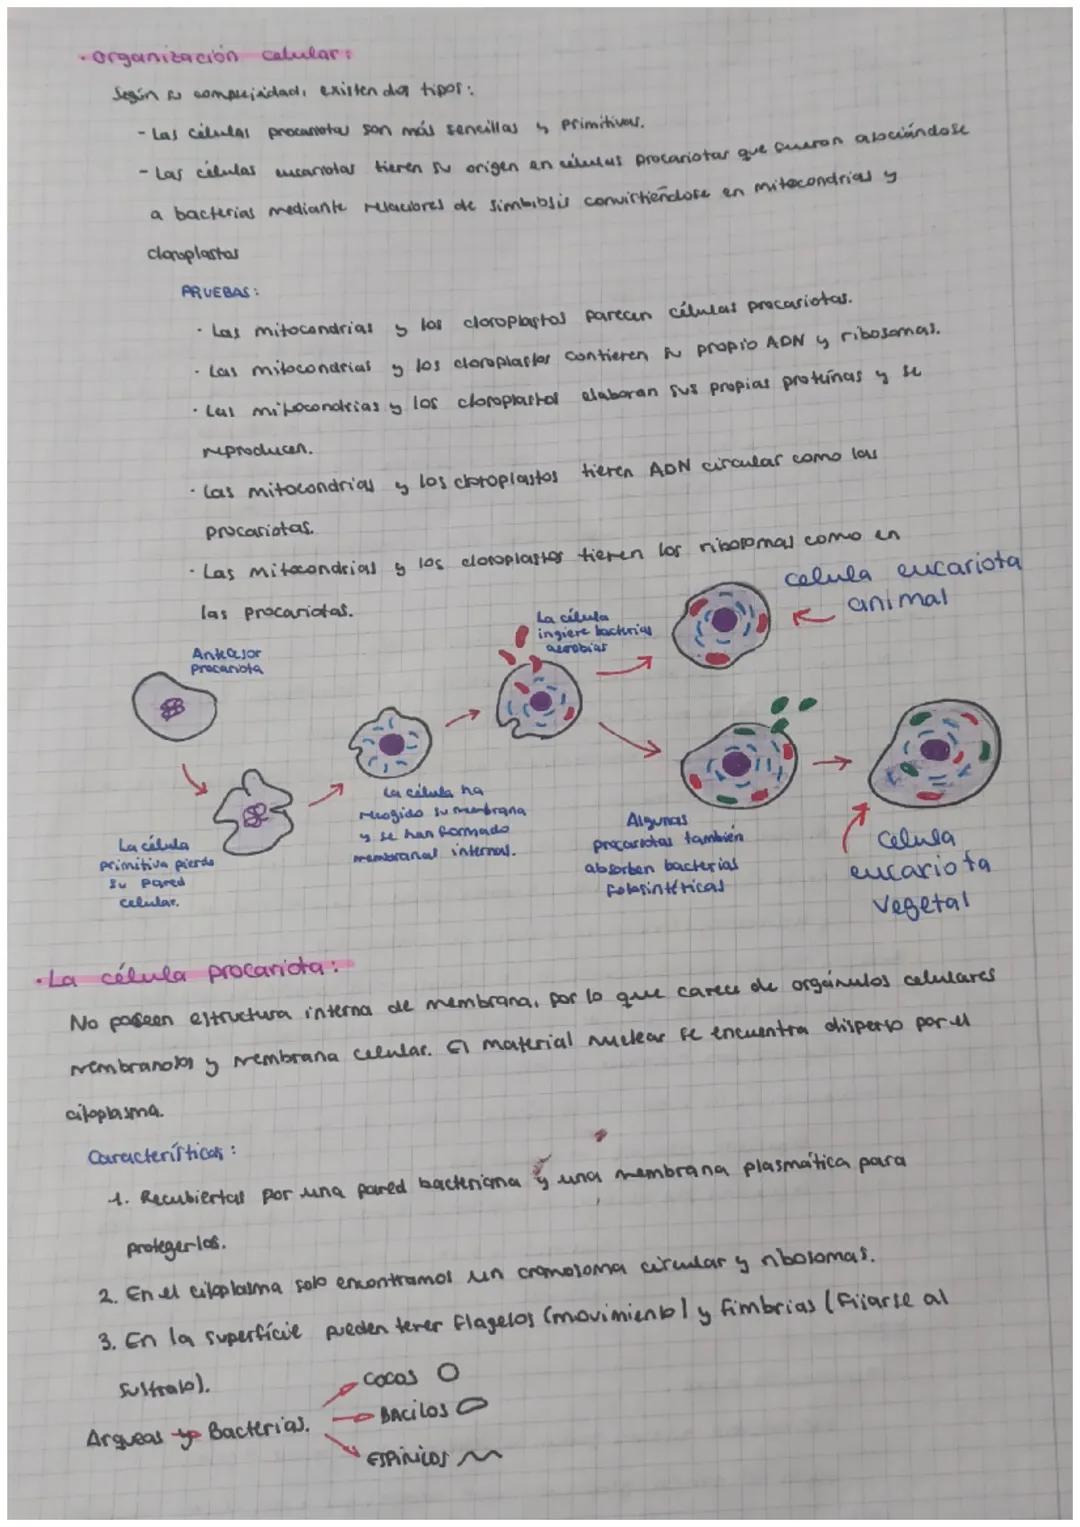 · Organización celular:
Según su complejidad, existen dos tipos:
- Las células procariotas son más sencillas y primitivas.
- Las células eucariotas tienen su origen en células procariotas que fueron asociándose
a bacterias mediante relaciones de simbiosis convirtiéndose en mitocondrias y
cloroplastos
PRUEBAS:
· Las mitocondrias y los cloroplastos parecen células procariotas.
· Las mitocondrias y los cloroplastos contienen su propio ADN y ribosomas.
· Las mitocondrias y los cloroplastos elaboran sus propias proteínas y se
reproducen.
· Las mitocondrias y los cloroplastos tienen ADN circular como las
procariotas.
· Las mitocondrias y los cloroplastos tienen los ribosomas como en
las procariotas.
Antecesor
procariota
La célula
primitiva pierde
su pared
celular.
La célula ha
recogido su membrana
y se han formado
membranas internas.
La célula
ingiere bacterias
aerobias
celula eucariota
animal
Algunas
procariotas también
absorben bacterias
fotosintéticas
Celula
eucariota
vegetal
· La célula procariota:
No poseen estructura interna de membrana, por lo que carece de orgánulos celulares
membranosos y membrana celular. El material nuclear se encuentra disperso por el
citoplasma.
Características:
1. Recubiertas por una pared bacteriana y una membrana plasmática para
protegerlas.
2. En el citoplasma solo encontramos un cromosoma circular y ribosomas.
3. En la superfície pueden tener flagelos (movimiento) y fimbrias (fijarse al
sustrato).
Argueas y Bacterias.
COCOS
BACILOS
ESPIRILOS